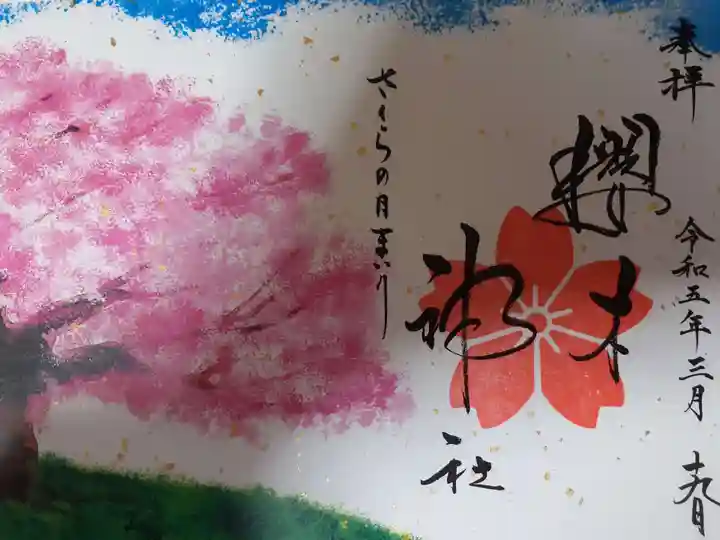 奉拝
令和五年三月十九日
櫻木
神社
さくらの月まいり